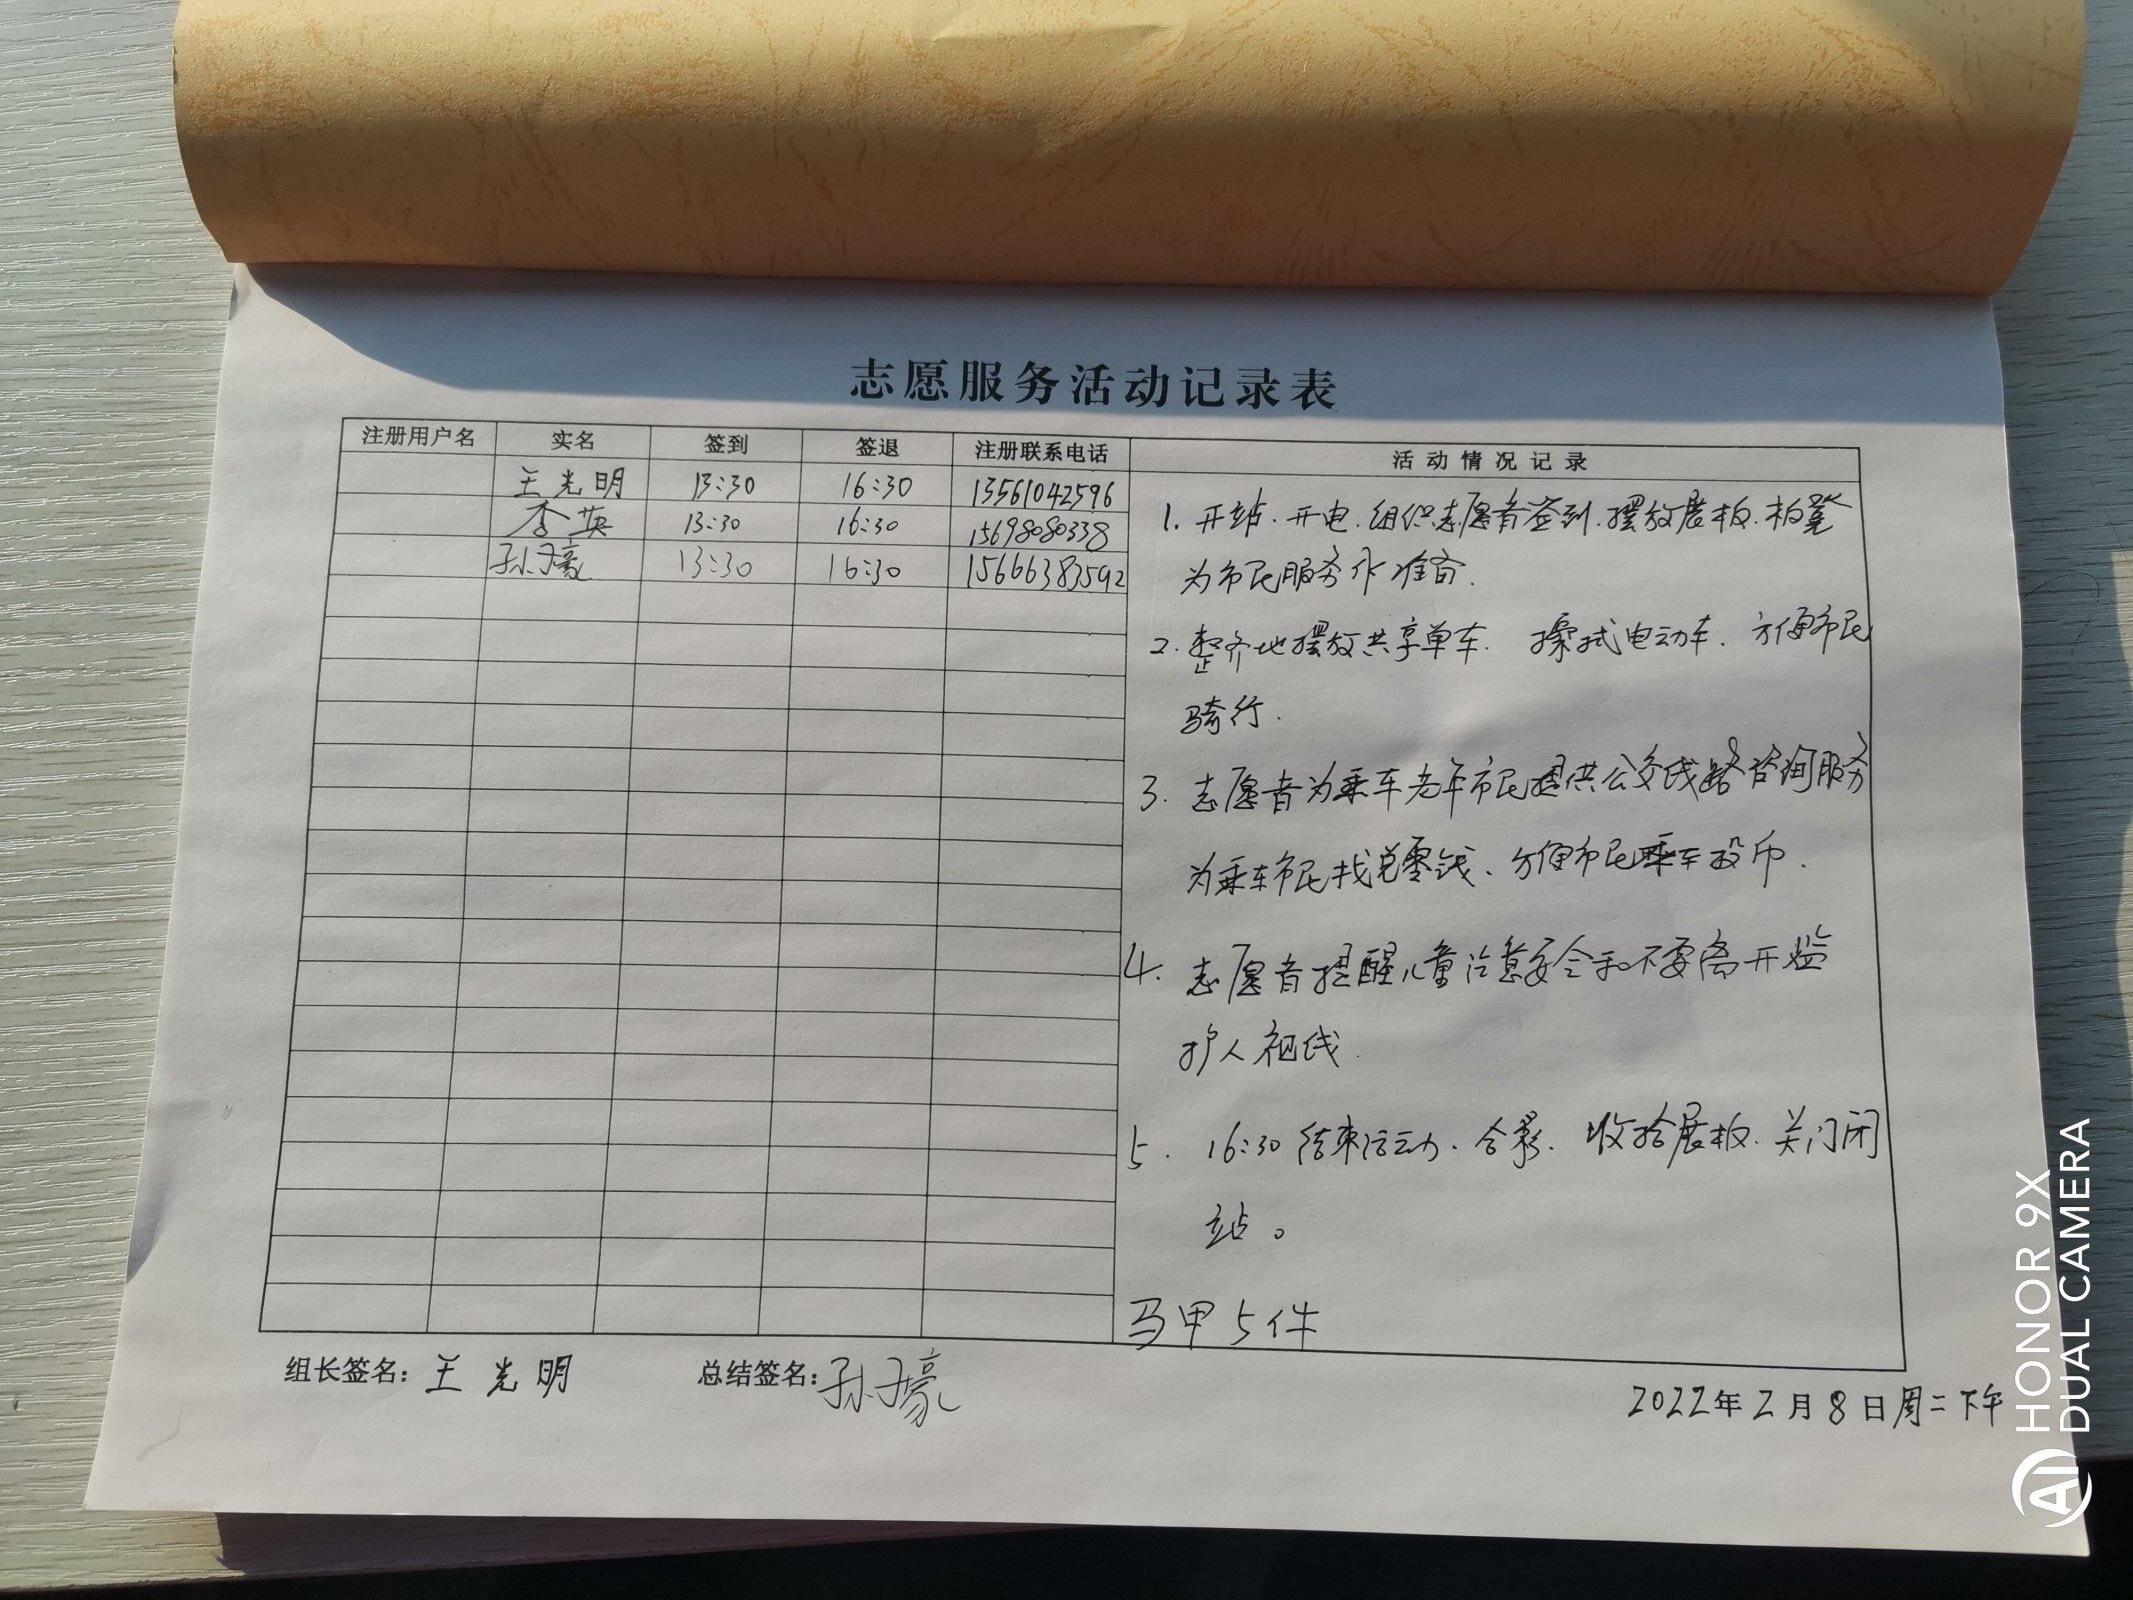 志愿服务活动记录表
注册用户名 实名 签到 签退 注册联系电话 活动情况记录
王光明 13:30 16:30 13561042596
李英 13:30 16:30 15698080338
孙子豪 13:30 16:30 15666383592
1. 开站、开电、组织志愿者签到、摆放展板、板凳
为市民服务作准备.
2. 整齐地摆放共享单车. 擦拭电动车. 方便市民
骑行.
3. 志愿者为乘车老年市民提供公交线路咨询服务
为乘车市民找兑零钱、方便市民乘车投币.
4. 志愿者提醒儿童注意安全和不要离开监
护人视线.
5. 16:30 结束活动、合影、收拾展板、关门闭
站。
马甲5件
组长签名: 王光明 总结签名: 孙子豪
2022年2月8日周二下午
HONOR 9X
AI DUAL CAMERA